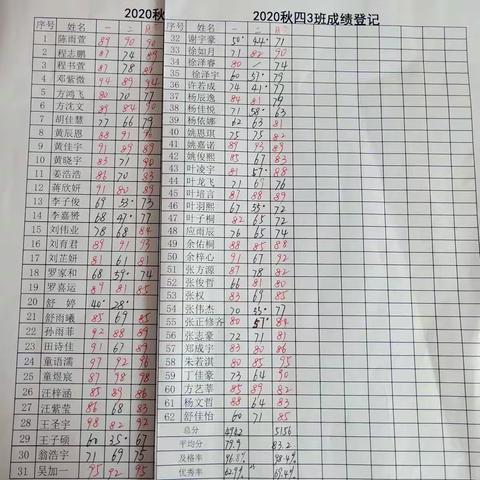 2020秋
1 陈雨萱 89 90 90
2 程志鹏 87 74 89
3 程书萱 87 78 81
4 邓紫微 94 89 94
5 方鸿飞 80 70 77
6 方沈文 89 84 90
7 胡佳慧 77 66 79
8 黄辰恩 88 91 95
9 黄佳宇 91 89 89
10 黄晓宇 83 71 90
11 姜浩浩 86 70 83
12 蒋欣妍 91 80 89
13 李子俊 69 53 73
14 李嘉赟 68 47 77
15 刘伟业 78 68 84
16 刘有君 89 91 93
17 刘芷妍 81 61 81
18 罗家和 68 59 74
19 罗喜运 89 81 85
20 舒婷 40 28
21 舒雨曦 85 69 85
22 孙雨菲 92 88 89
23 田诗佳 91 67 89
24 童语潇 97 92 96
25 童煜宸 87 98 98
26 汪梓涵 85 89 86
27 汪紫莹 86 68 83
28 王圣宇 98 82 92
29 王子硕 60 35 67
30 翁浩宇 71 69 75
31 吴加一 95 92 95
2020秋四3班成绩登记
序号 姓名 一 二
32 谢宇豪 50 44 71
33 徐如月 71 82 90
34 徐泽睿 80 / 74
35 徐泽宇 60 57 79
36 许若成 74 41 77
37 杨辰逸 84 81 79
38 杨佳悦 71 58 63
39 杨依娜 62 63 81
40 姚恩琪 75 75 82
41 姚嘉诺 89 93 89
42 姚俊熙 85 67 83
43 叶凌宇 81 57 88
44 叶龙飞 71 69 76
45 叶培言 87 88 89
46 叶羽熙 67 35 72
47 叶子桐 82 65 72
48 应雨辰 76 65 74
49 余佑桐 88 85 88
50 余梓心 91 67 92
51 张方源 87 78 82
52 张俊哲 66 81 80
53 张权 83 69 85
54 张伟杰 70 33 77
55 张正修齐 80 57 84
56 张志豪 72 71 81
57 郑成宇 83 80 86
58 朱若淇 80 85 95
59 丁佳豪 73 64 90
60 方艺莘 85 89 82
61 杨文哲 88 64 83
62 舒佳怡 60 71 85
总分 4942 5156
平均分 79.9 83.2
及格率 96.8% 98.4%
优秀率 62.9% 69.4%